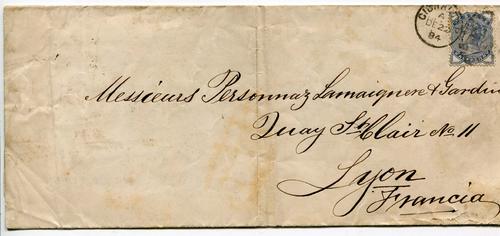 A
DE 22
84
Messieurs Personnaz Lamaignere & Gardin
Quay St Clair No 11
Lyon
Francia